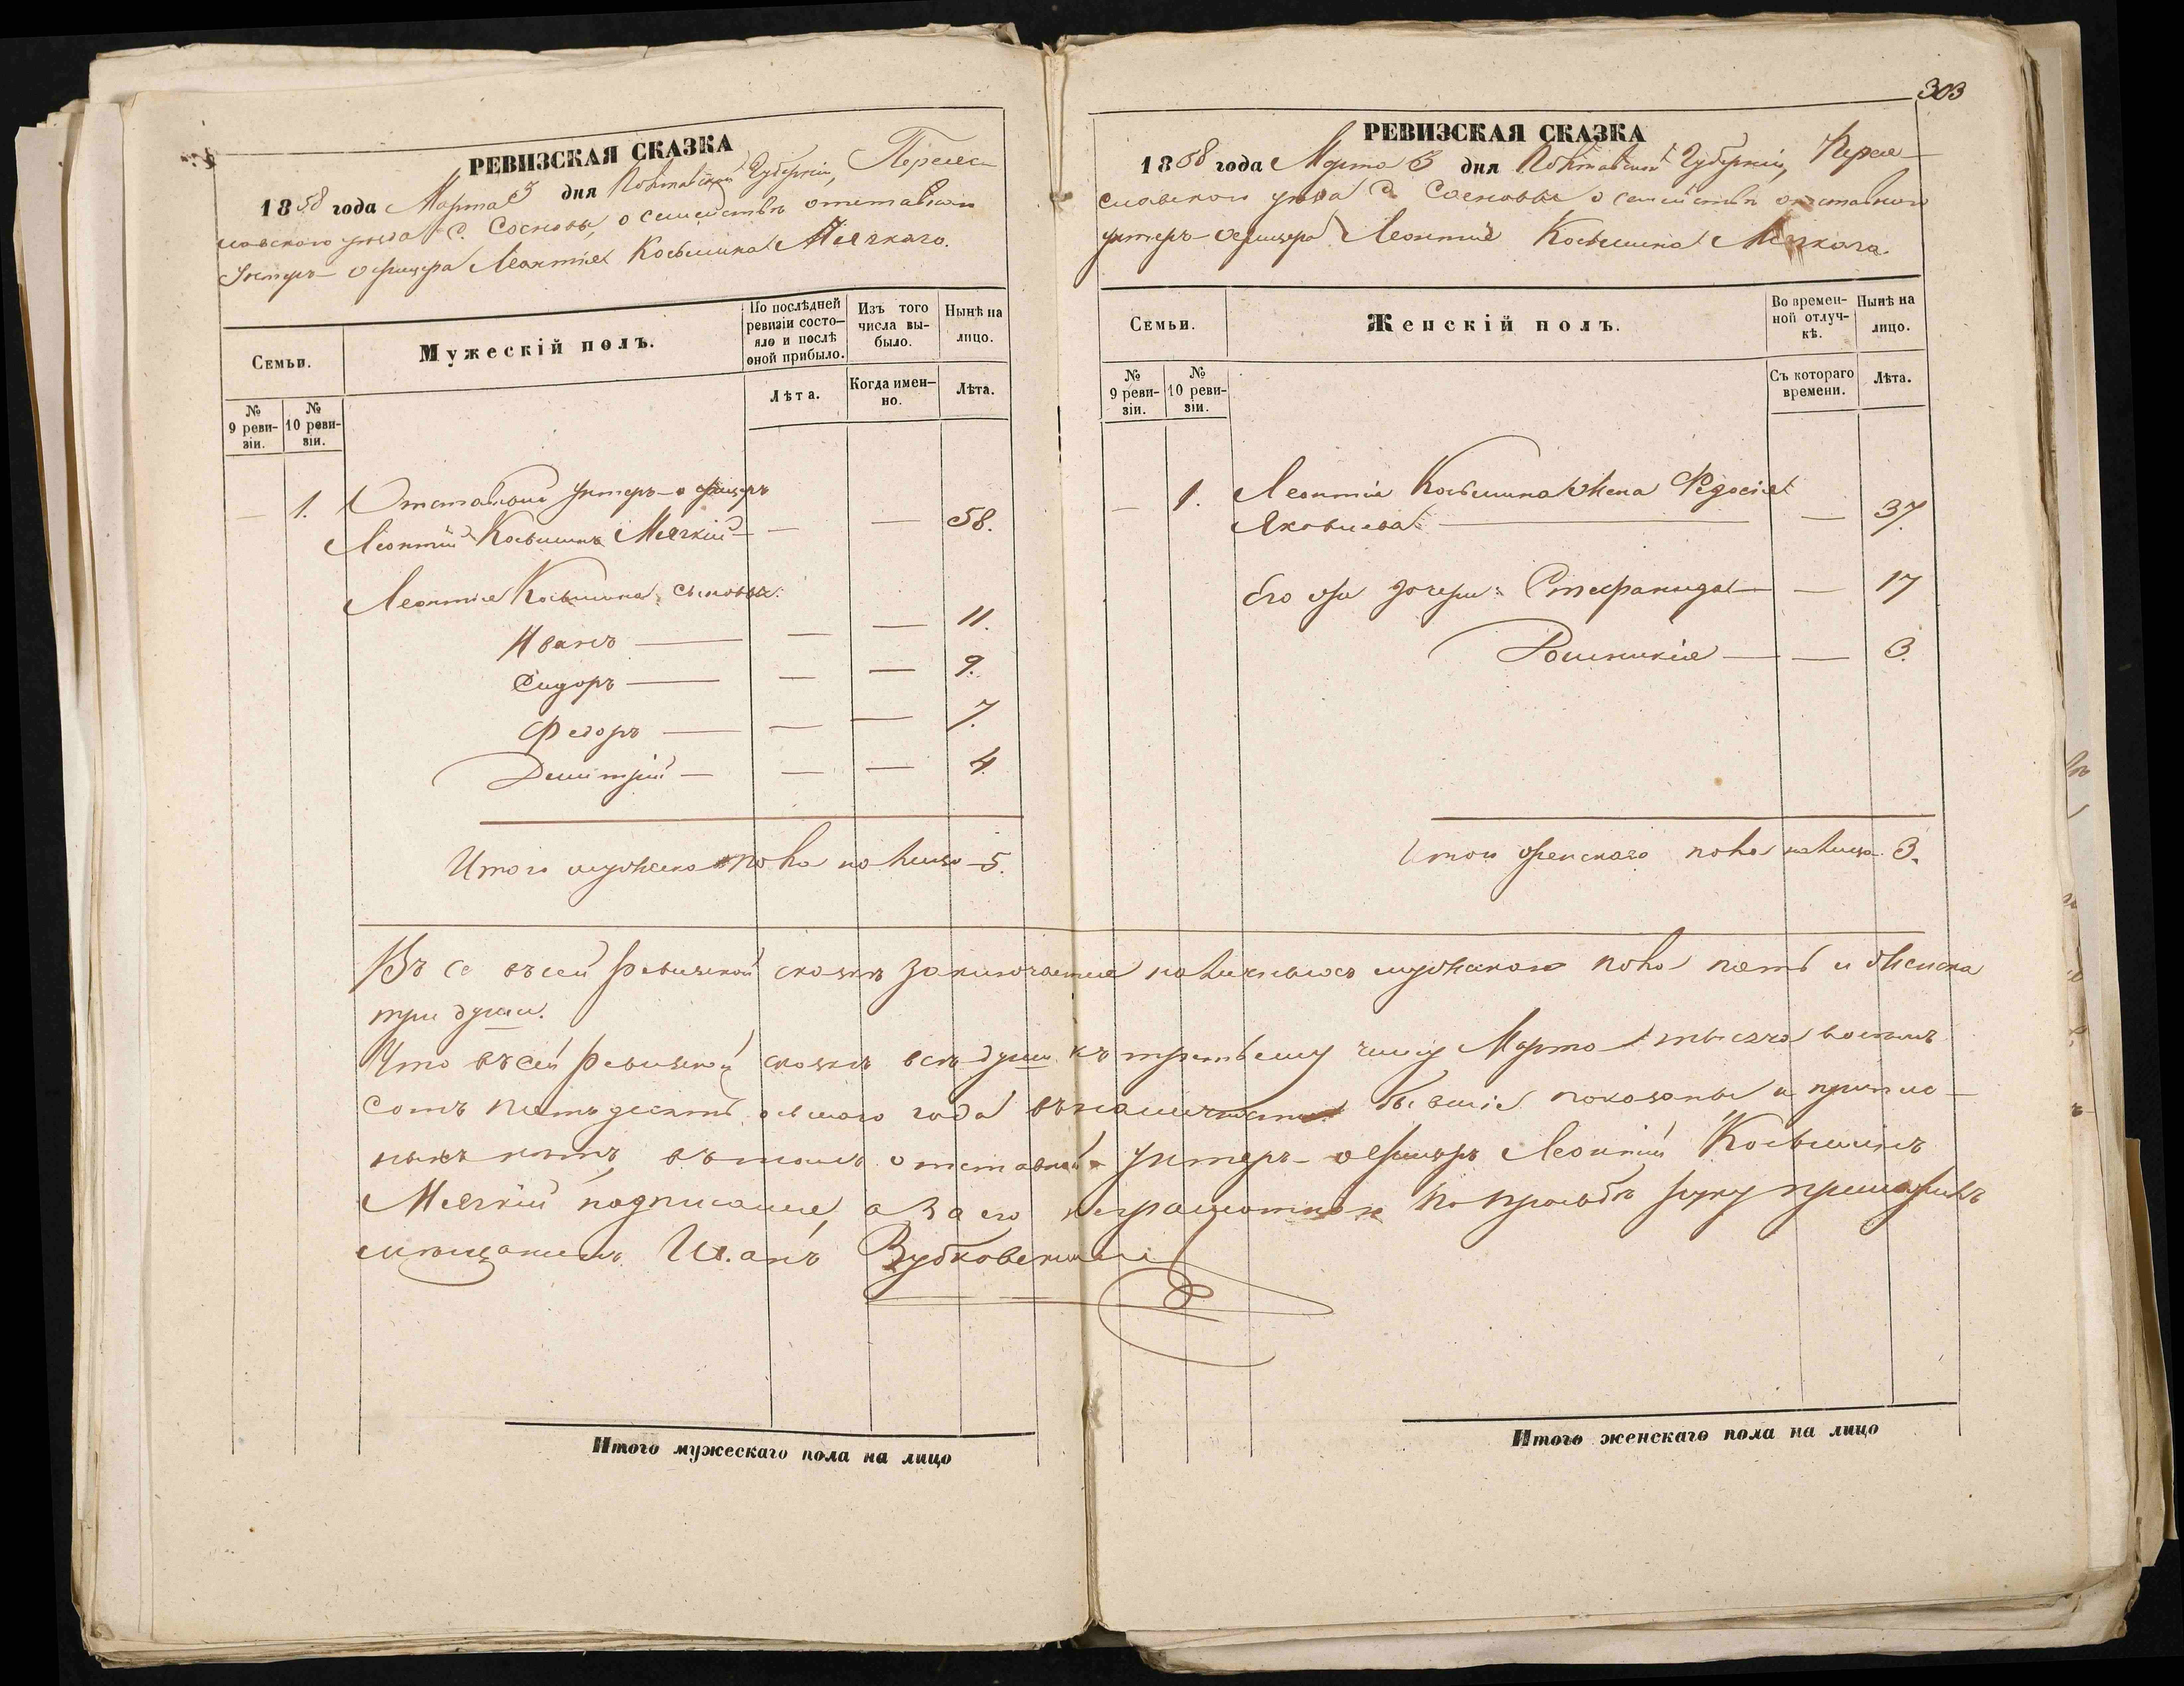 303
РЕВИЗСКАЯ СКАЗКА
1858 года Марта 3 дня Полтавской Губерніи, Переяс-
лавского уезда С. Сосновы, о семействѣ отставнаго
Унтеръ-офицера Леонтія Косьмина Мягкаго.
Семьи.
Мужескій полъ.
По послѣдней ревизіи состо-яло и послѣ оной прибыло.
Изъ того числа вы-было.
Нынѣ на лицо.
№ 9 реви-зіи.
№ 10 реви-зіи.
Лѣта.
Когда имен-но.
Лѣта.
— 1. Отставной Унтеръ-офицеръ
Леонтій Косьминъ Мягкій — — — 58.
Леонтія Косьмина сыновья:
Иванъ — — — 11.
Сидоръ — — — 9.
Федоръ — — — 7.
Димитрій — — — 4.
Итого мужеска пола на лицо — 5.
РЕВИЗСКАЯ СКАЗКА
1858 года Марта 3 дня Полтавской Губерніи, Перея-
славского уезда С. Сосновы о семействѣ отставного
унтеръ-офицера Леонтія Косьмина Мягкаго.
Семьи.
Женскій полъ.
Во времен-ной отлуч-кѣ.
Нынѣ на лицо.
№ 9 реви-зіи.
№ 10 реви-зіи.
Съ котораго времени.
Лѣта.
— 1. Леонтія Косьмина жена Федосія
Яковлева — — 37.
Его же дочери: Стефанида — — 17
— — 3.
Итого женскаго пола на лицо 3.
Въ се въсей ревизской сказкѣ заключается наличныхъ мужескаго пола пять и женска
три души.
Что въсей ревизской сказкѣ всѣ души къ третьему числу Марта тысяча восемь
сотъ пятьдесятъ осьмого года въналичности бывшія показаны и
нѣтъ, вътомъ отставной Унтеръ-офицеръ Леонтій Косьминъ
Мягкій подписался, а за его неграмотного по просьбѣ руку приложилъ
мѣщанинъ Иванъ Зубковскій
Итого мужескаго пола на лицо
Итого женскаго пола на лицо